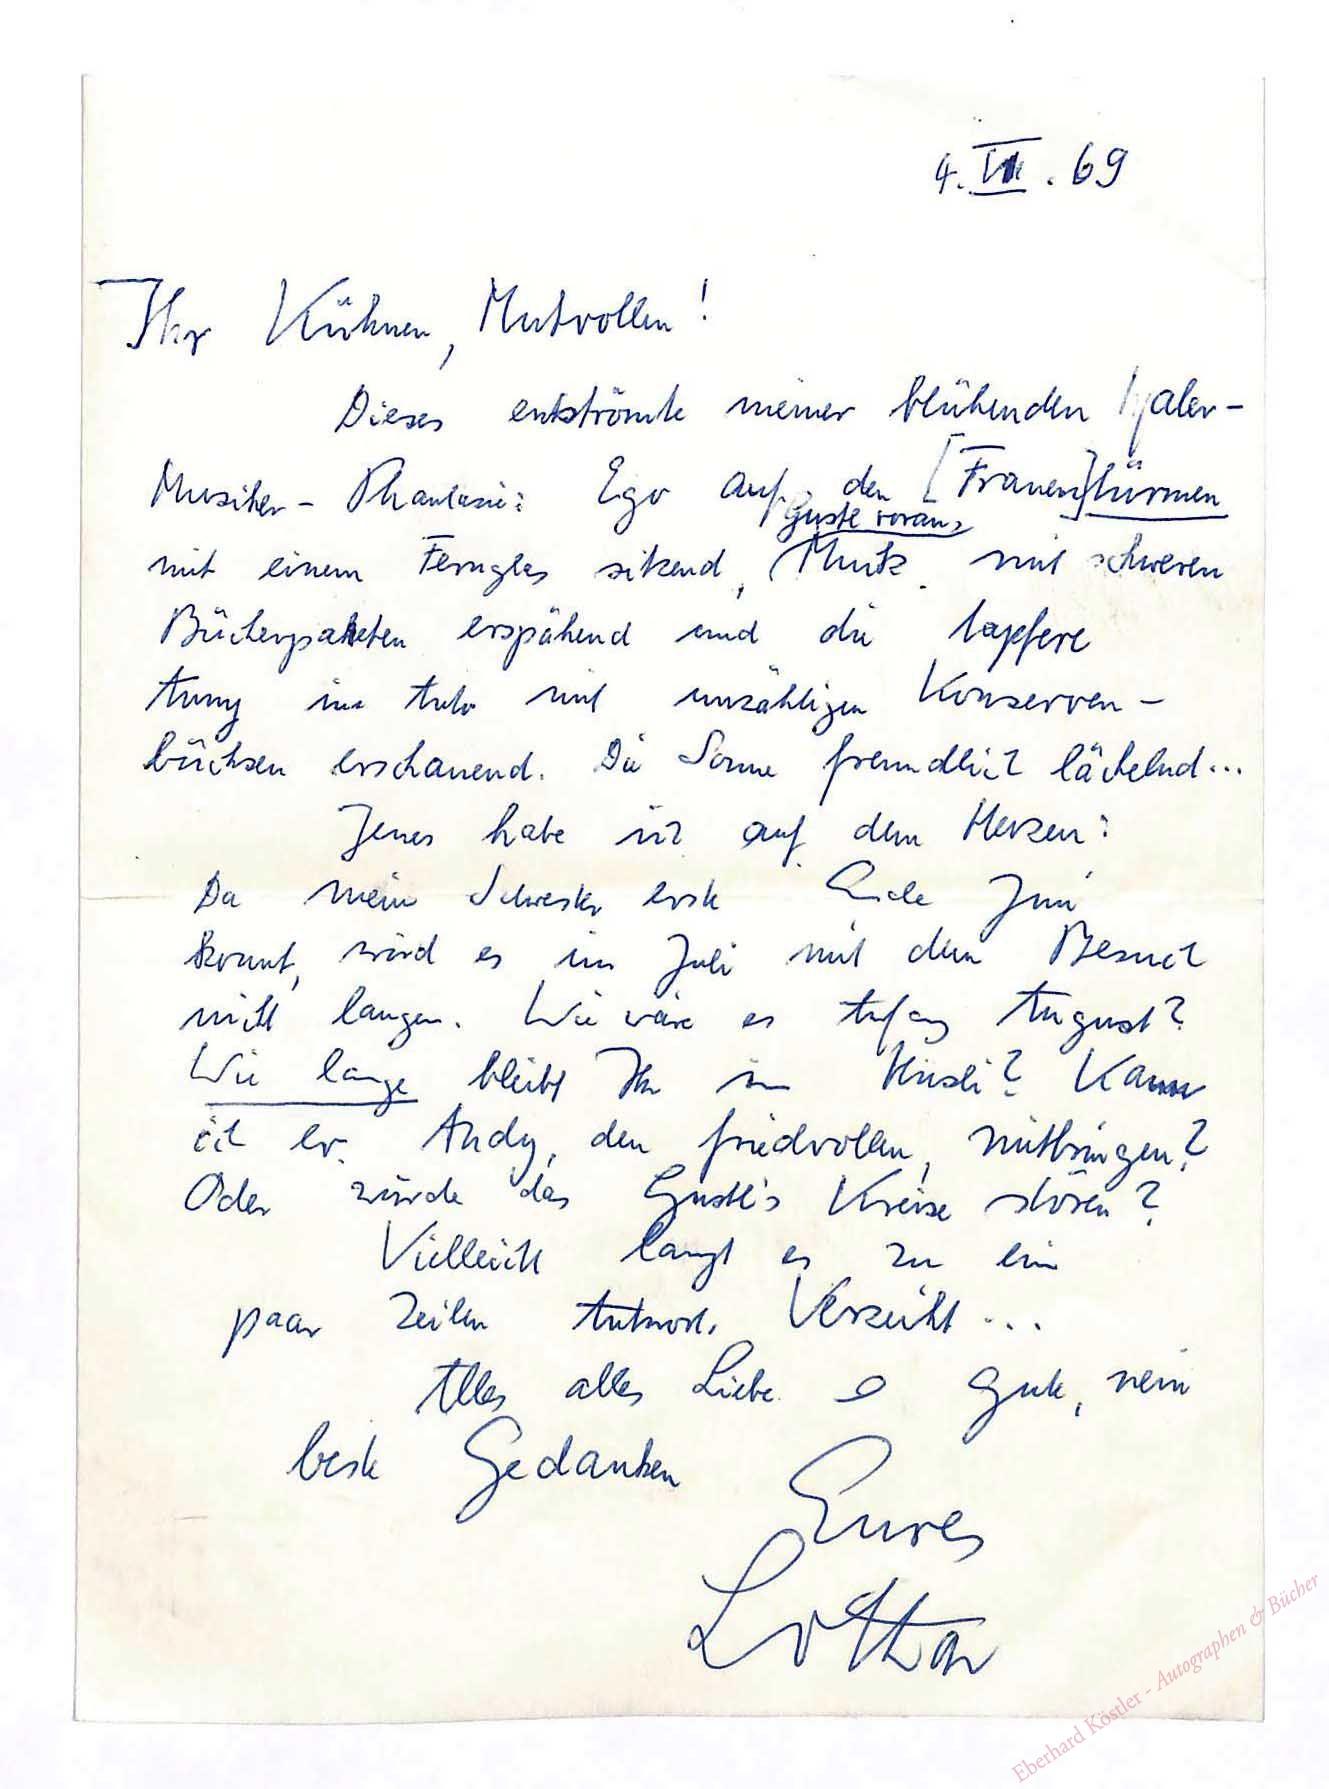 4. VI. 69
Ihr Kühnen, Mutvollen!
Dieses entströmte meiner blühenden Maler-
Musiker-Phantasie: Ego auf den [Frauen]türmen
Guste voran,
mit einem Fernglas sitzend, Mutz mit schweren
Bücherpaketen erspähend und die tapfere
im Auto mit unzähligen Konserven-
büchsen erschauend. Die Sonne freundlich lächelnd...
Jenes habe ich auf dem Herzen:
Da mein Schwester erste Ende Juni
kommt, wird es im Juli mit dem Besuch
nicht langen. Wie wäre es Anfang August?
Wie lange bleibt Ihr im Häusli? Kann
ich ev. Andy, den friedvollen, mitbringen?
Oder würde das Gustl's Kreise stören?
Vielleicht langt es zu ein
paar Zeilen Antwort. Verzeiht...
Alles alles Liebe & Gute, nein
beste Gedanken
Eures
Lothar
Eberhard Köstler - Autographen & Bücher